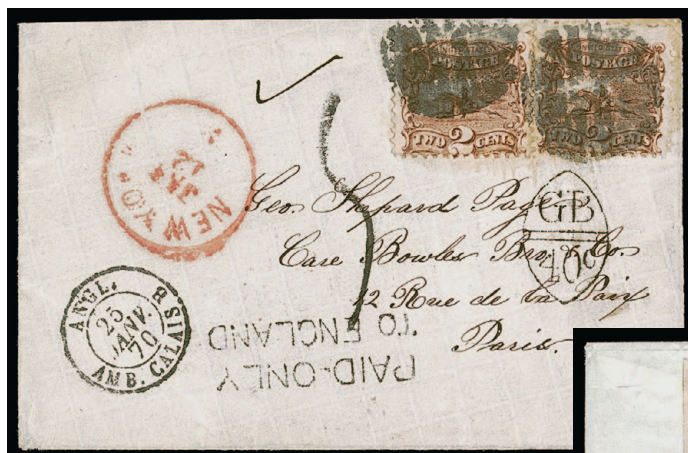 POSTAGE POSTAGE
TWO 2 CENTS TWO 2 CENTS
NEW YO
JAN
22
5
GB
40c
Geo. Shepard Page
Care Bowles Bro. & Co.
12 Rue de la Paix
Paris.
ANGL.
25
JANV.
70
AMB. CALAIS B
PAID-ONLY
TO ENGLAND